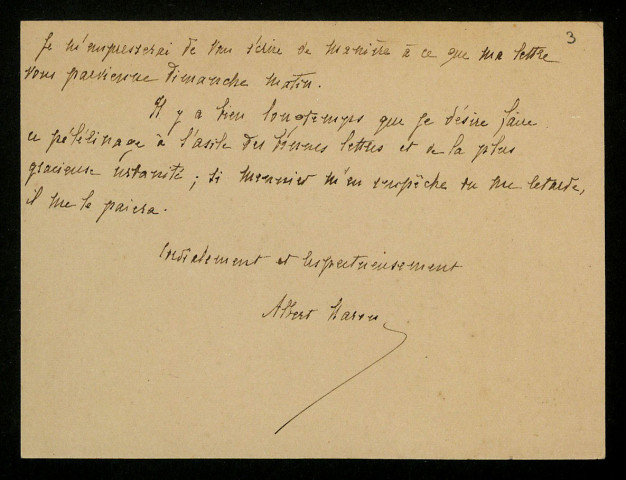 3
Je m'empresserai de vous écrire de manière à ce que ma lettre
vous parvienne Dimanche matin.
Il y a bien longtemps que je désire faire
ce pélérinage à l'asile des bonnes lettres et de la plus
gracieuse urbanité ; si Meunier m'en empêche ou me retarde,
il me le paiera.
Cordialement et respectueusement
Albert